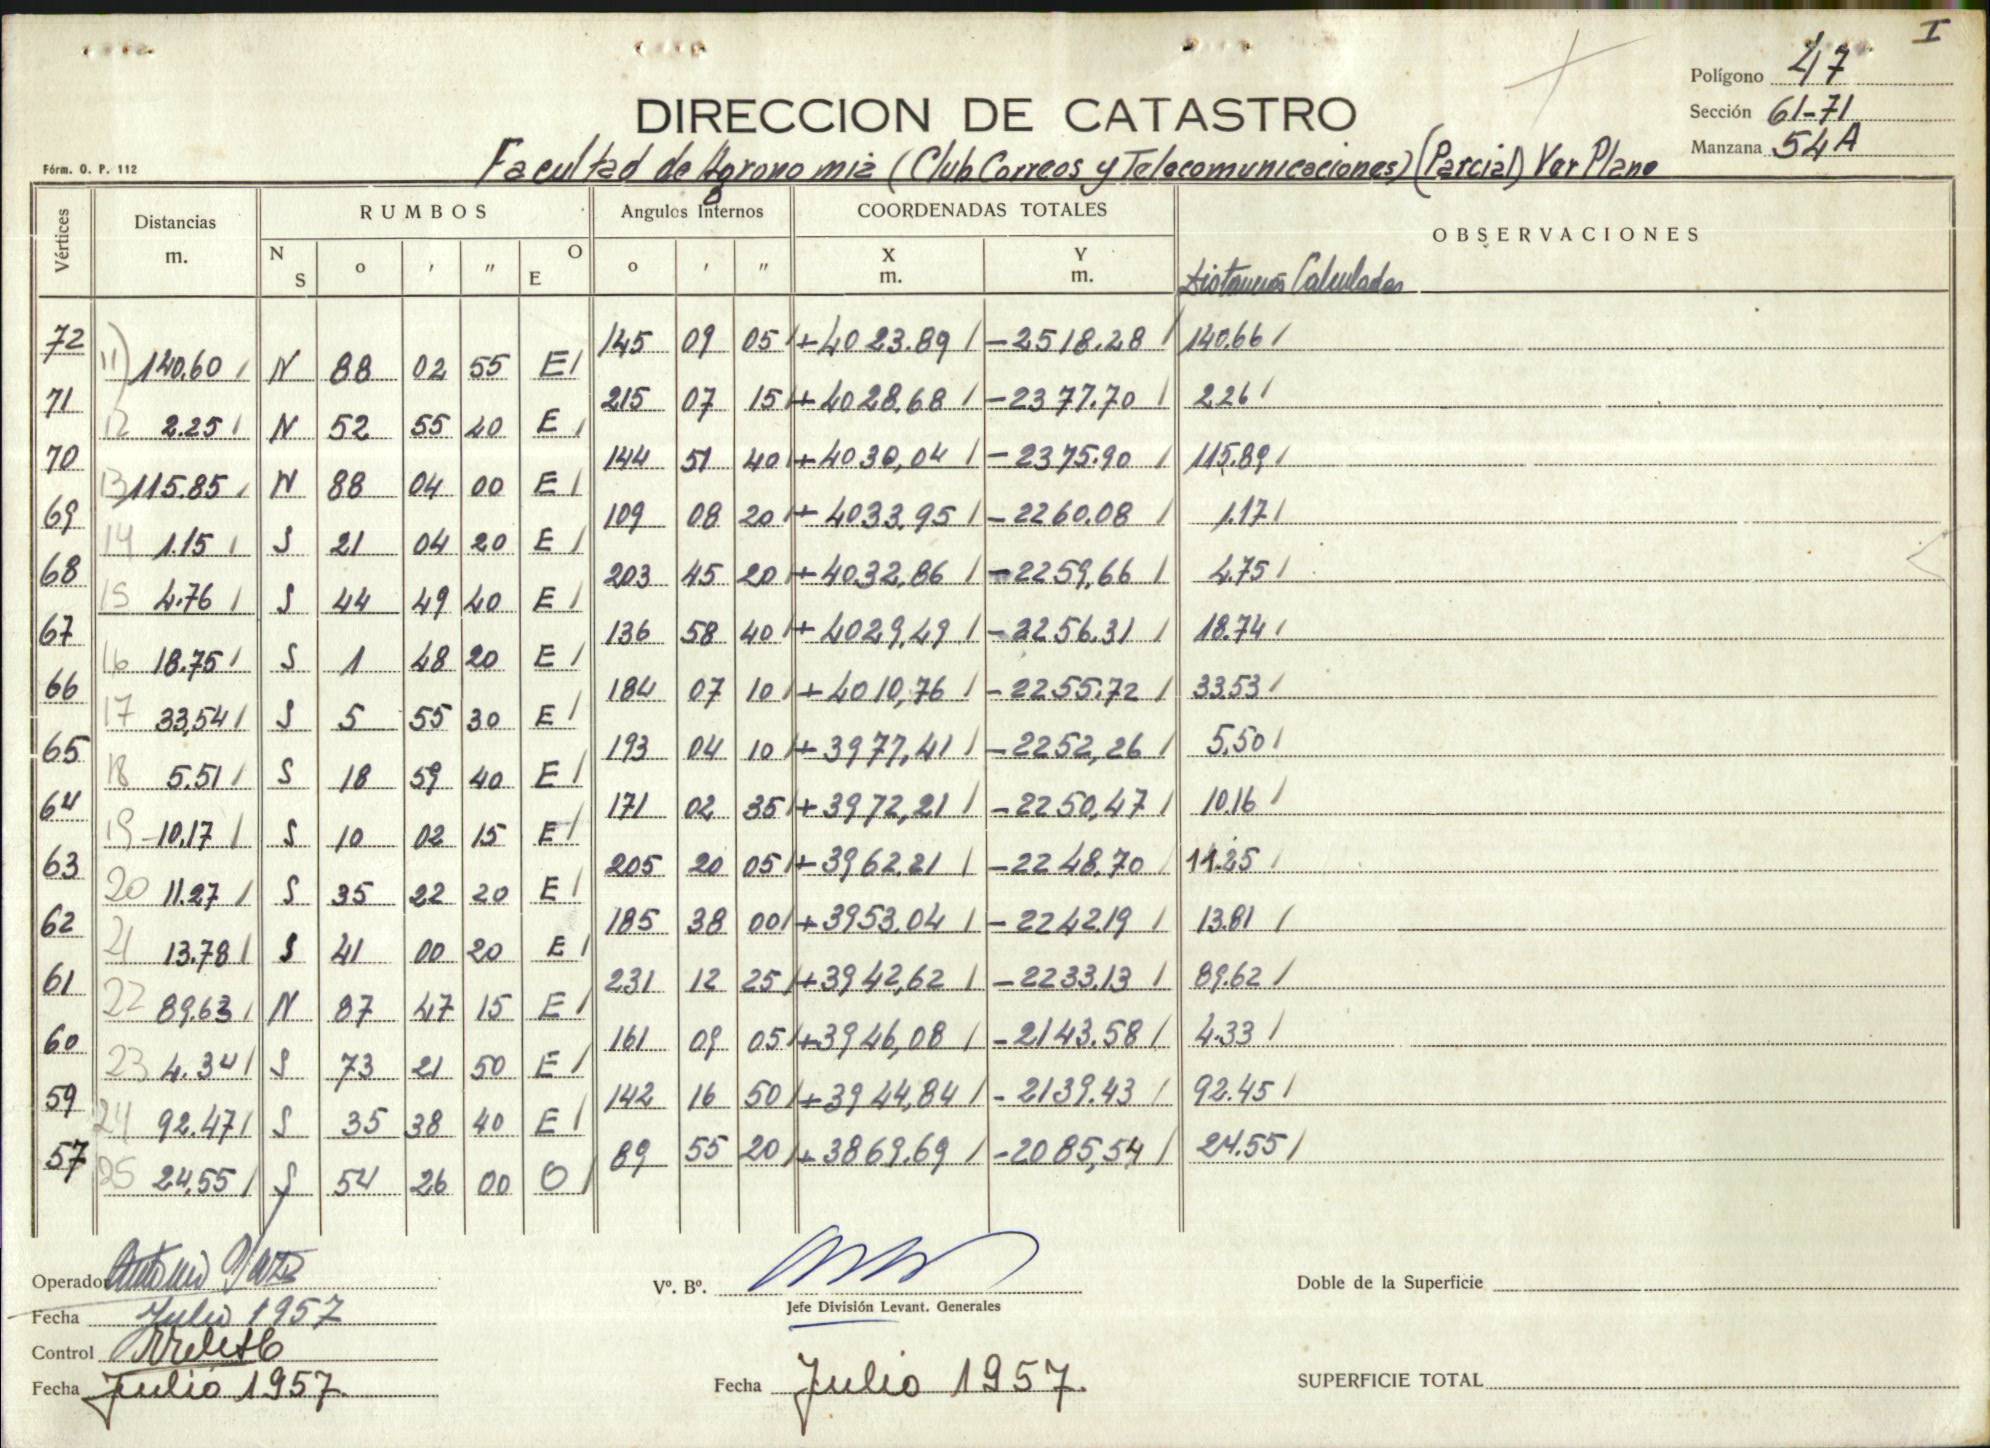 I
Polígono 47
Sección 61-71
Manzana 54A
DIRECCION DE CATASTRO
Fórm. O. P. 112
Facultad de Agronomia (Club Correos y Telecomunicaciones) (Parcial) Ver Plano
Vértices Distancias m. RUMBOS Angulos Internos COORDENADAS TOTALES OBSERVACIONES
N S o ' " O E o ' " X m. Y m. Distancias Calculadas
72 145 09 05 +4023.89 -2518.28 140.66
11) 140.60 N 88 02 55 E
71 215 07 15 +4028.68 -2377.70 2.26
12 2.25 N 52 55 40 E
70 144 51 40 +4030,04 -2375.90 115.89
13) 115.85 N 88 04 00 E
69 109 08 20 +4033,95 -2260.08 1.17
14 1.15 S 21 04 20 E
68 203 45 20 +4032,86 -2259,66 4.75
15 4.76 S 44 49 40 E
67 136 58 40 +4029,49 -2256.31 18.74
16 18.75 S 1 48 20 E
66 184 07 10 +4010,76 -2255.72 33.53
17 33,54 S 5 55 30 E
65 193 04 10 +3977,41 -2252,26 5.50
18 5.51 S 18 59 40 E
64 171 02 35 +3972,21 -2250,47 10.16
19 10.17 S 10 02 15 E
63 205 20 05 +3962.21 -2248.70 11.25
20 11.27 S 35 22 20 E
62 185 38 00 +3953.04 -2242.19 13.81
21 13.78 S 41 00 20 E
61 231 12 25 +3942,62 -2233,13 89.62
22 89.63 N 87 47 15 E
60 161 09 05 +3946,08 -2143.58 4.33
23 4.34 S 73 21 50 E
59 142 16 50 +3944,84 -2139.43 92.45
24 92.47 S 35 38 40 E
57 89 55 20 +3869.69 -2085,54 24.55
25 24,55 S 54 26 00 O
Operador Antonio
Vº. Bº.
Doble de la Superficie
Jefe División Levant. Generales
Fecha Julio 1957
Control
Fecha Julio 1957.
Fecha Julio 1957.
SUPERFICIE TOTAL